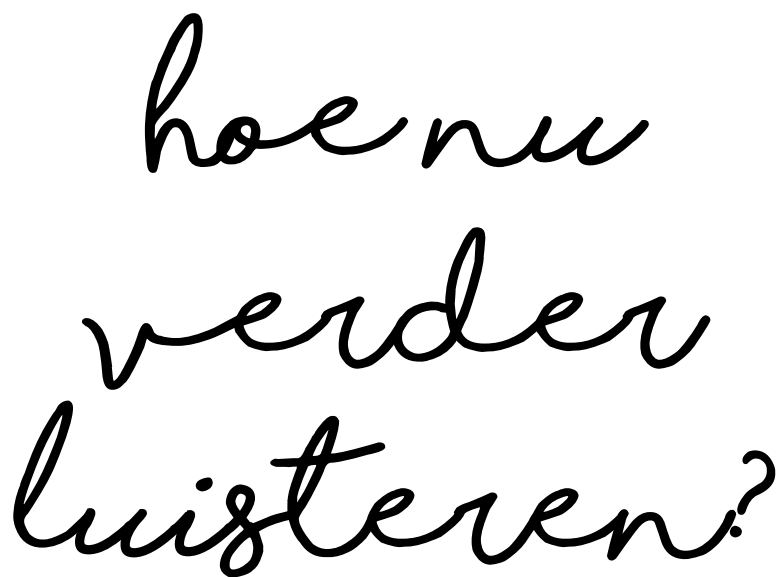 hoe nu
verder
luisteren?